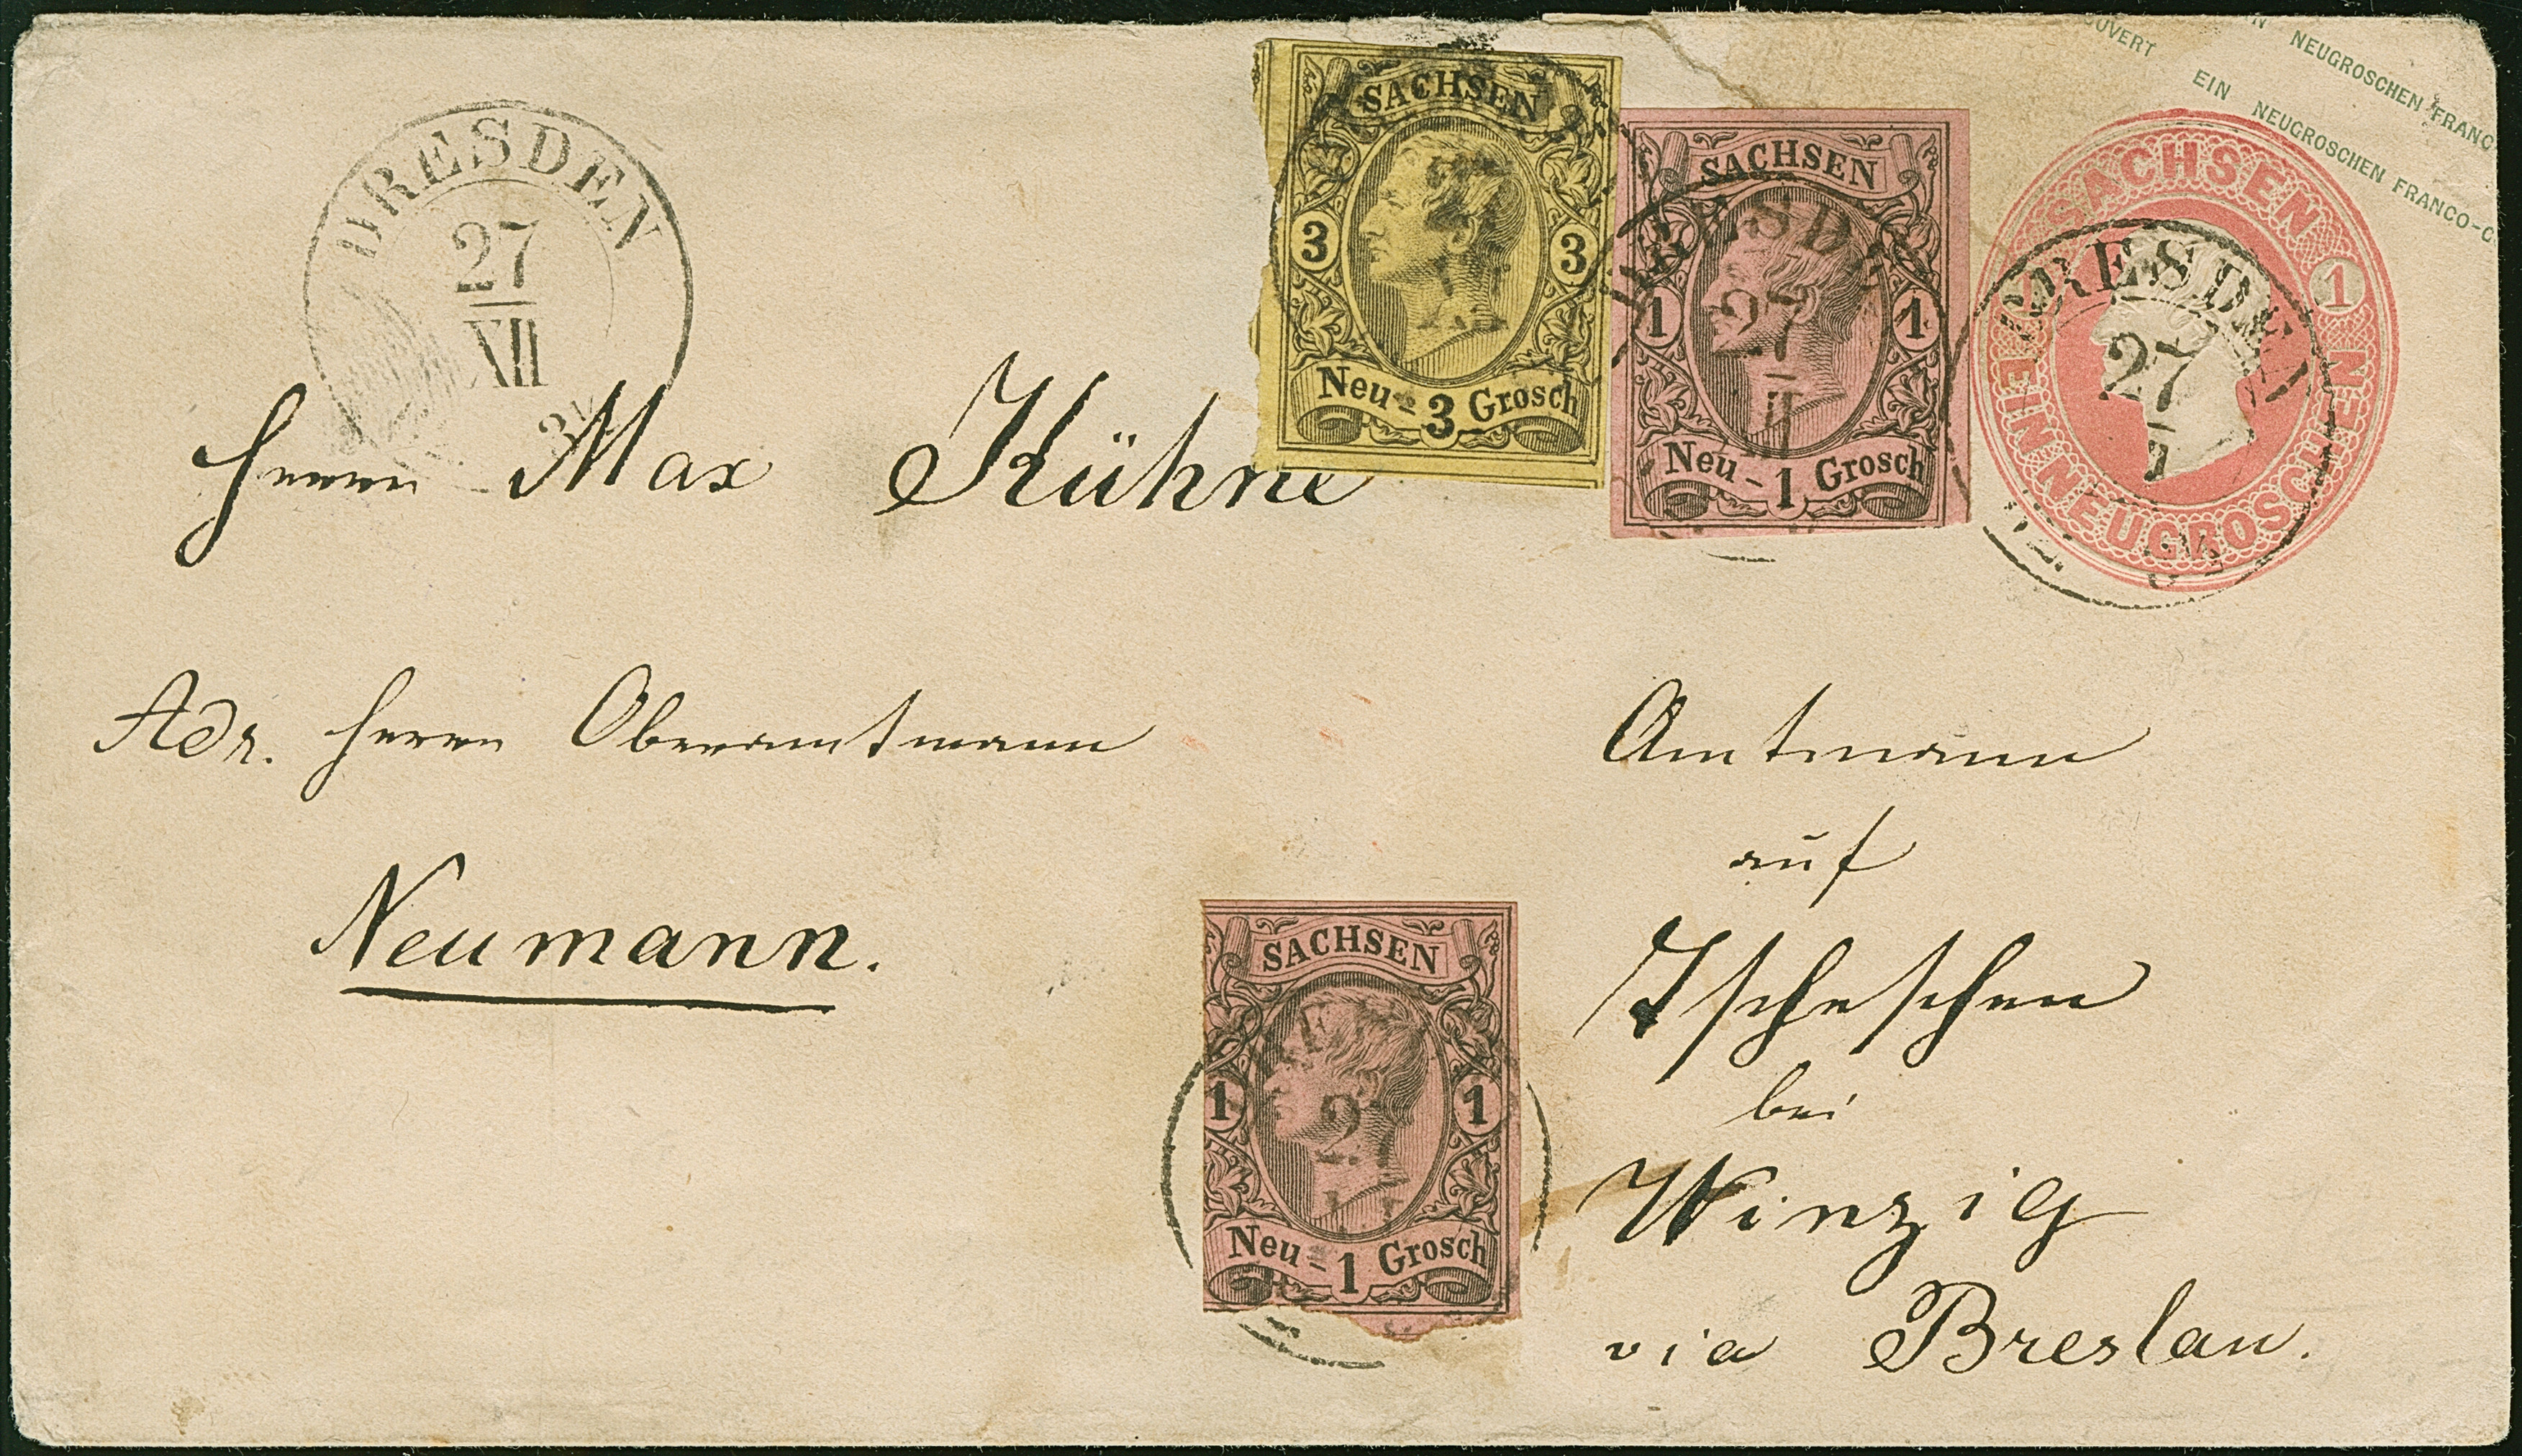 OUVERT EIN NEUGROSCHEN FRANC
EIN NEUGROSCHEN FRANCO-C
DRESDEN
27
XII
SACHSEN
3 3
Neu-3 Grosch
SACHSEN
1 1
Neu-1 Grosch
DRESD
27
SACHSEN
1
EIN NEUGROSCHEN
RESDEN
27
Herrn Max Kühne
Adr. Herrn Oberamtmann
Neumann.
SACHSEN
1 1
Neu-1 Grosch
Amtmann
auf
Tscheschen
bei
Winzig
via Breslau.